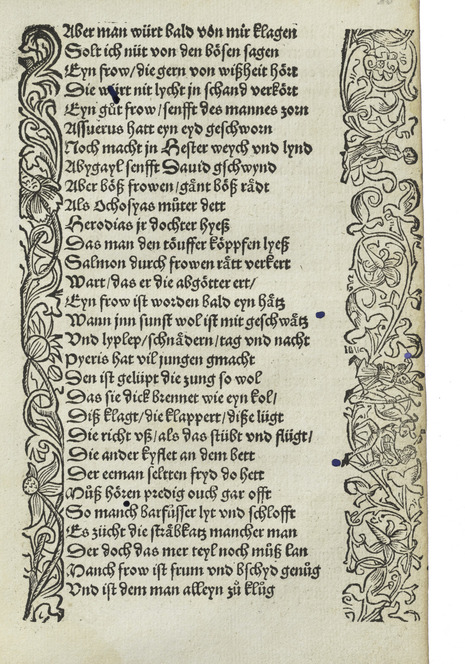 Aber man würt bald von mir klagen
Solt ich nüt von den bösen sagen
Eyn frow / die gern von wißheit hört
Die würt nit lycht jn schand verkört
Eyn gůt frow / senfft des mannes zorn
Assuerus hatt eyn eyd geschworn
Noch macht jn Hester weych vnd lynd
Abygayl senfft Dauid gschwynd
Aber böß frowen / gånt böß rådt
Als Ochosyas můter dett
Herodias jr dochter hyeß
Das man den töuffer köppfen lyeß
Salmon durch frowen rått verkert
Wart / das er die abgötter ert /
Eyn frow ist worden bald eyn håtz
Wann jnn sunst wol ist mit geschwåtz
Vnd lyplep / schnådern / tag vnd nacht
Pyeris hat vil jungen gmacht
Den ist gelüpt die zung so wol
Das sie dick brennet wie eyn kol /
Diß klagt / die klappert / diße lügt
Die richt vß / als das stübt vnd flügt /
Die ander kyflet an dem bett
Der eeman seltten fryd do hett
Můß hören predig ouch gar offt
So manch barfůsser lyt vnd schlofft
Es züicht die stråbkatz mancher man
Der doch das mer teyl noch můß lan
Manch frow ist frum vnd bschyd genůg
Vnd ist dem man alleyn zů klůg